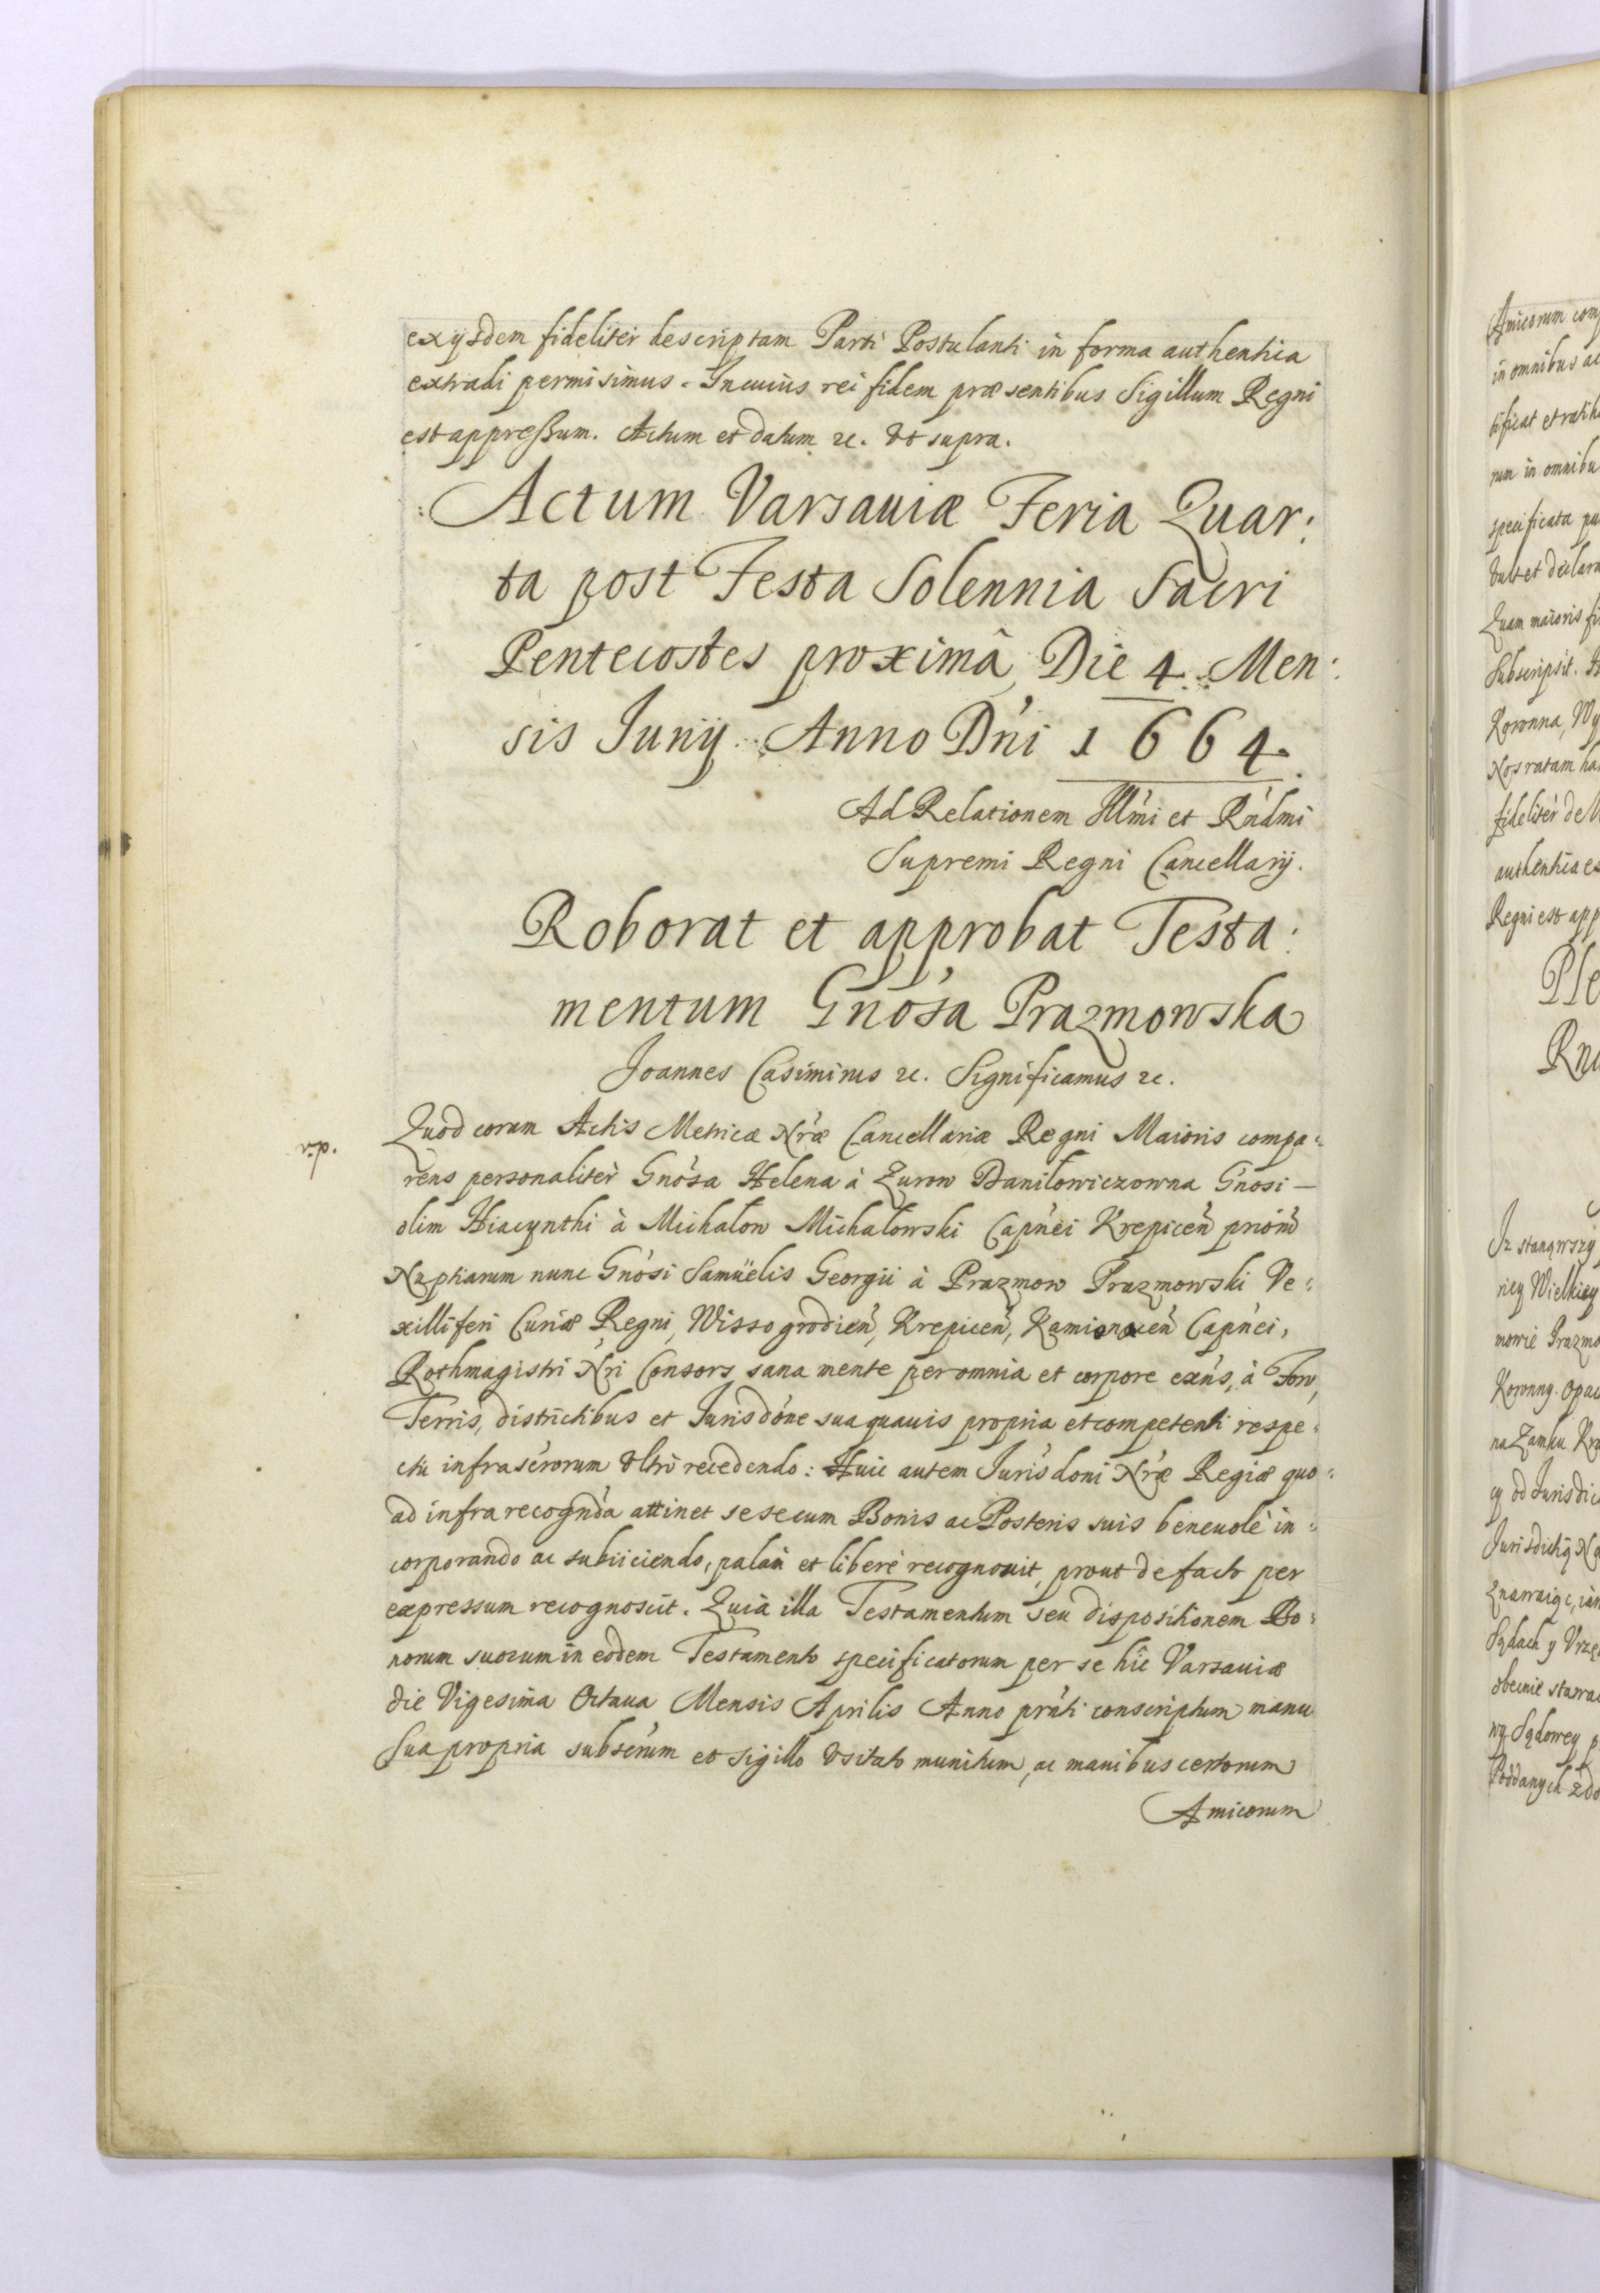 ex ijsdem fideliter descriptam Parti Postulanti in forma authentica
extradi permisimus. In cuius rei fidem præsentibus Sigillum Regni
est appreßum. Actum et datum &c. vt supra.
Actum Varsauiæ Feria Quar:
ta post Festa Solennia Sacri
Pentecostes proximâ, Die 4. Men:
sis Junij. Anno D'ni 1664.
Ad Relationem Ill'mi et R'ndmi
Supremi Regni Cancellarij.
Roborat et approbat Testa:
mentum Gno'sa Prazmowska
Joannes Casimirus &c. Significamus &c.
Quod coram Actis Metricæ N'ræ Cancellariæ Regni Maioris compa:
rens personalitèr Gno'sa Helena à Zurow Daniłowiczowna G'nosi
olim Hiacynthi à Michałow Michałowski Capn'ei Krepicen' priom'
Nuptiarum nunc Gno'si Samüelis Georgii à Prazmow Prazmowski Ve:
xilliferi Curiæ Regni, Wissogrodien', Krepicen', Capn'ei,
Rothmagistri N'ri Consors, sana mente per omnia et corpore exn's, à Foro,
Terris, districtibus et Jurisdo'ne sua quauis propria et competenti respe:
ctu infrasc'rorum vltrò recedendo: Huic autem Juris'doni N'ræ Regiæ quo:
ad infra recogn'da attinet se se cum Bonis ac Posteris suis beneuolè in:
corporando ac subiiciendo, palàm et liberè recognouit, prout de facto per
expressum recognoscit. Quia illa Testamentum seu dispositionem Bo:
norum suorum in eodem Testamento specificatorum per se hîc Varsauiæ
die Vigesima Octaua Mensis Aprilis Anno prn'ti conscriptum manu
sua propria subsc'rum et sigillo vsitato munitum, ac manibus certorum
Amicorum
Amicorum
in omnibus ac
rum in omnibu
specificata
vult et declara
Quam maioris fi
Subscripsit.
Koronna,
Nos ratam ha
fideliter de
authentica
Regni est app
Ple
na Zamku